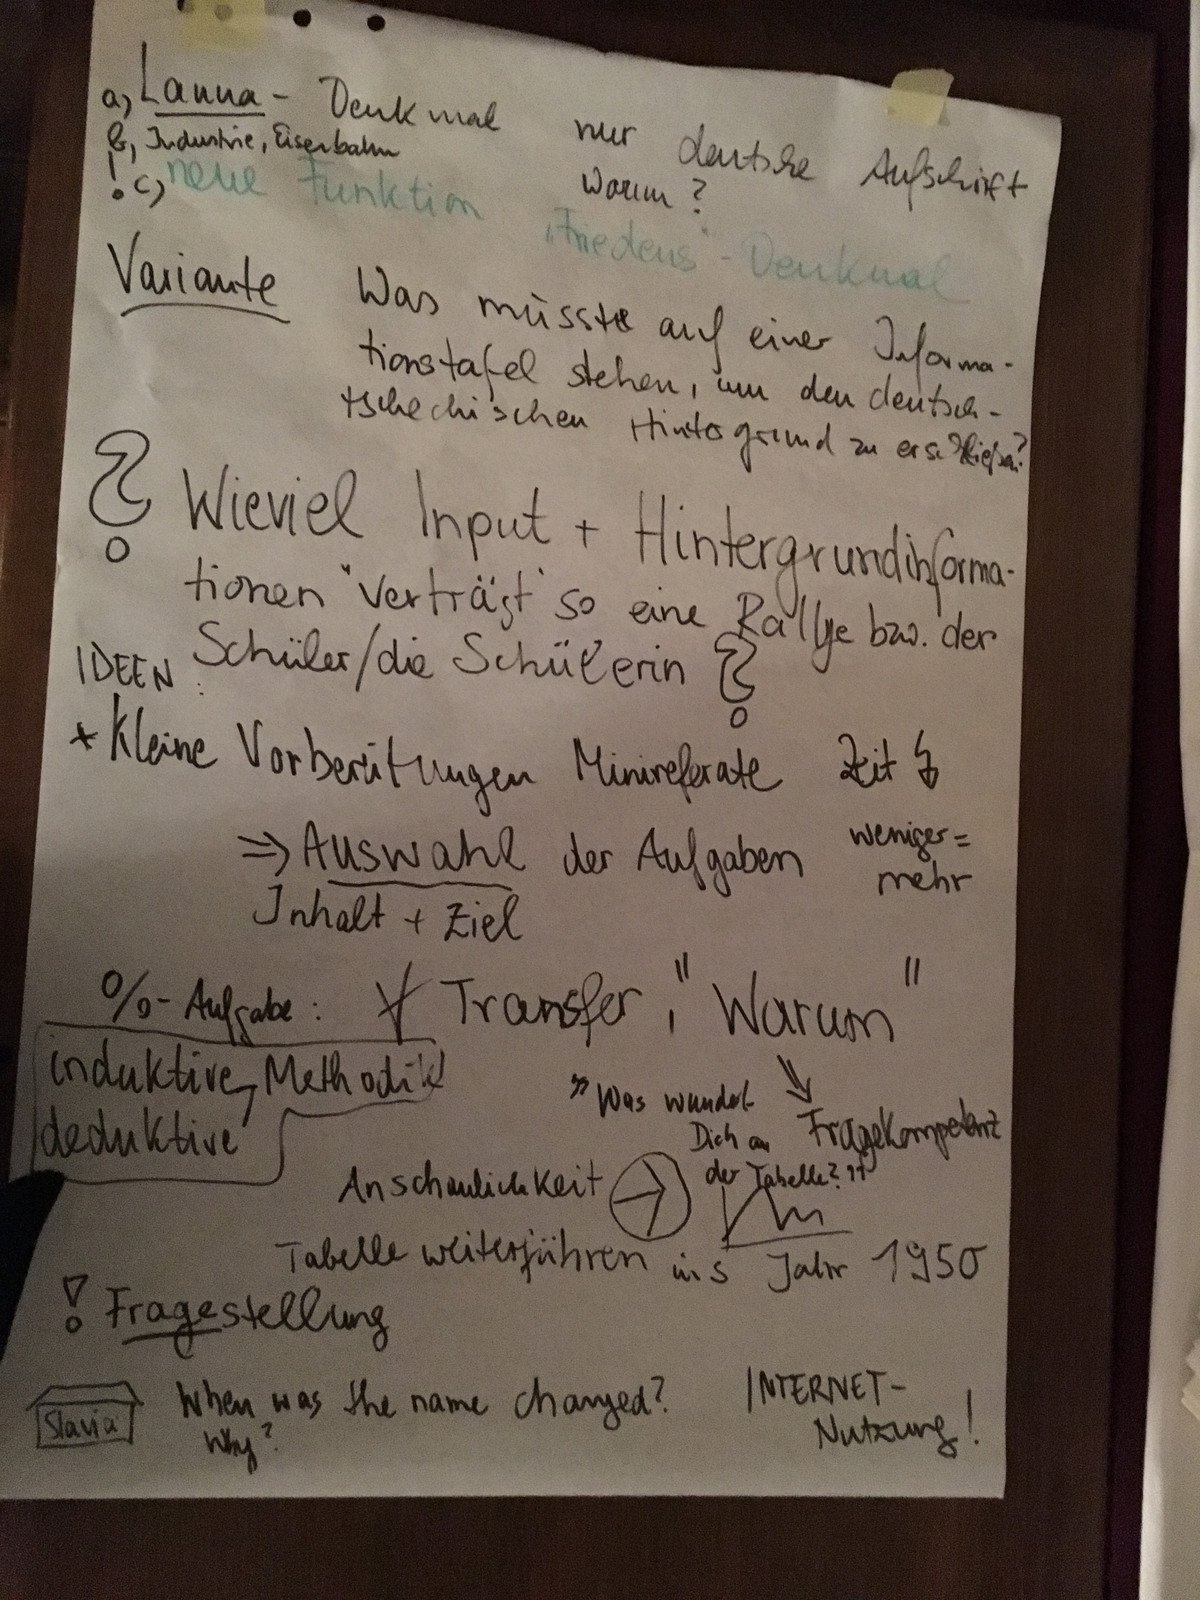 a, Lanna - Denkmal nur deutsche Aufschrift
b, Industrie, Eisenbahn Warum?
! c, neue Funktion "Friedens"-Denkmal
Variante Was müsste auf einer Informa-
tionstafel stehen, um den deutsch-
tschechischen Hintergrund zu erschließen?
? Wieviel Input + Hintergrundinforma-
tionen "verträgt" so eine Rallye bzw. der
Schüler/die Schülerin ?
IDEEN:
* Kleine Vorbereitungen Minireferate Zeit
=> Auswahl der Aufgaben weniger =
mehr
Inhalt + Ziel
%-Aufgabe: Transfer, "Warum"
induktive, Methodik
deduktive
"Was wundert
Dich an
der Tabelle?"
Fragekompetenz
Anschaulichkeit
Tabelle weiterführen ins Jahr 1950
! Fragestellung
Slavia When was the name changed?
Why?
INTERNET-
Nutzung!